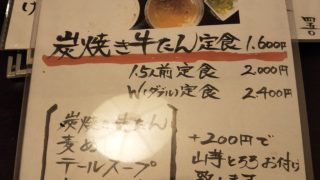 け
炭焼き牛たん定食 1.600円
1.5人前定食 2.000円
W(ダブル)定食 2.400円
炭焼き牛たん
麦め
テールスープ
+200円で
山芋とろろお付け
致します